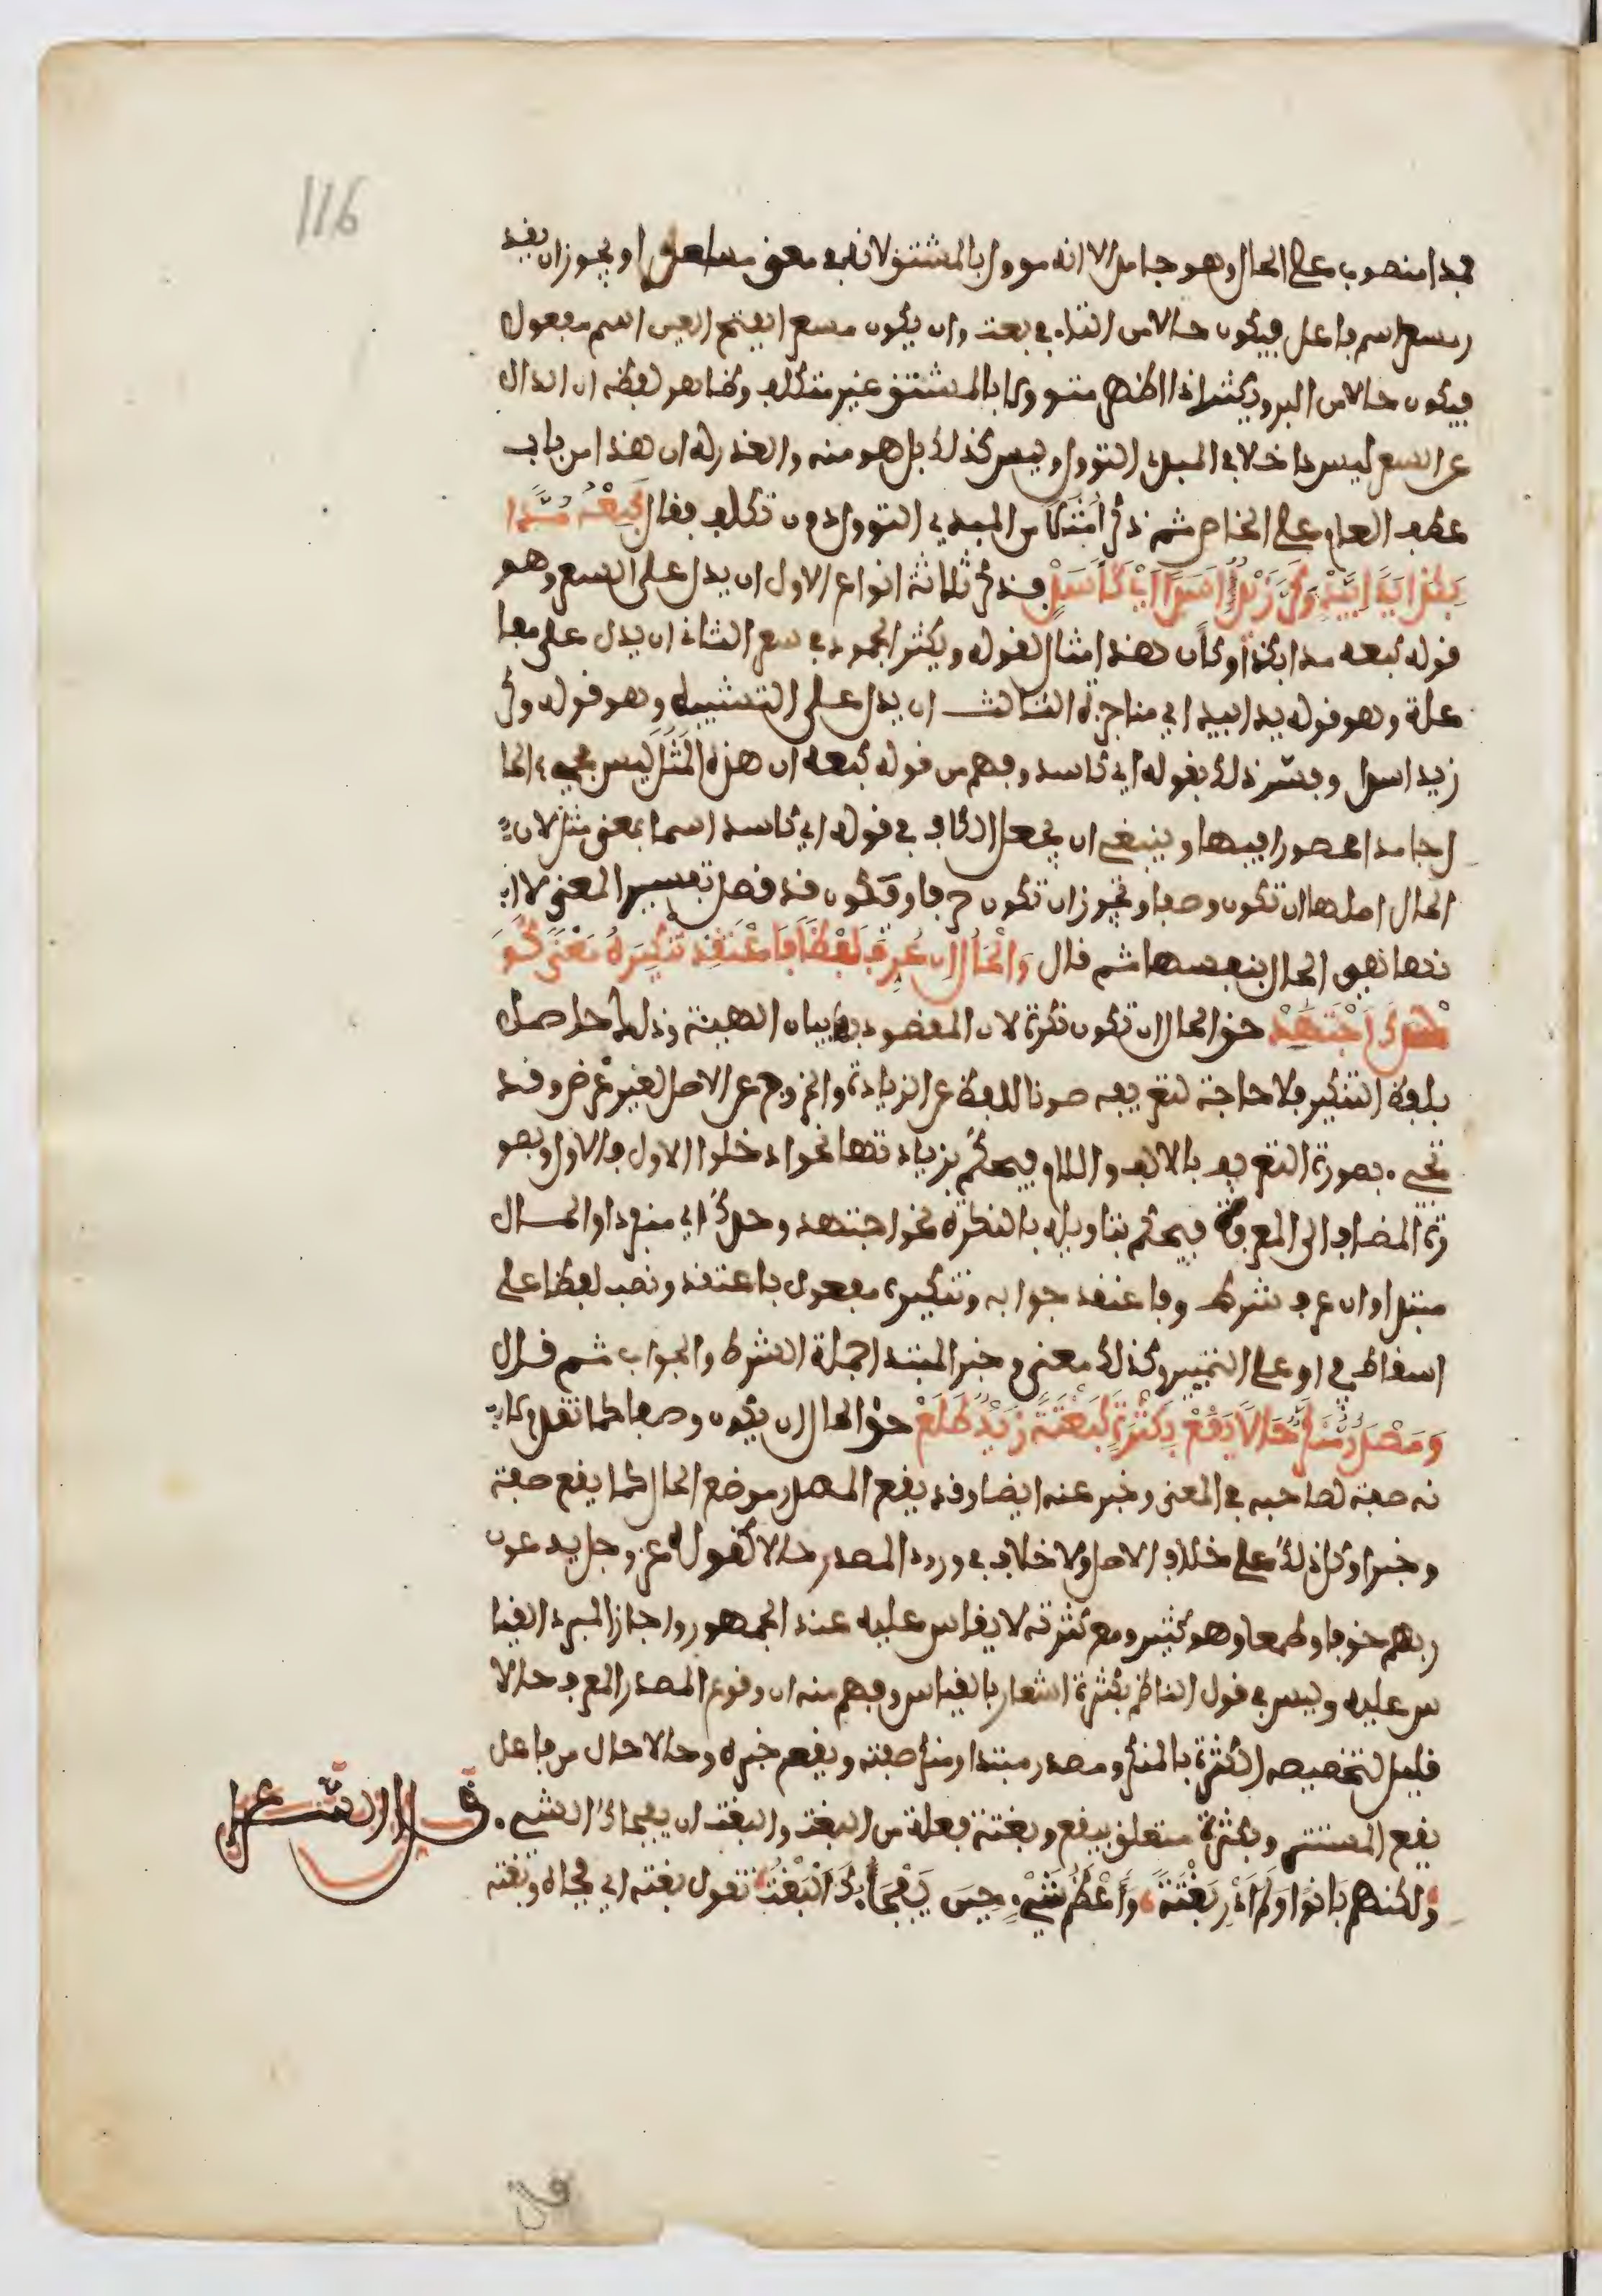 116
فمدا منصوب على الحال وهو جامد الا انه موول بالمشتق لانه في معنى مسعرا ويجوز ان يقد
ر مسعر اسم فاعل فيكون حالا من التاء في بعت وان يكون مسعرا بفتح العين اسم مفعول
فيكون حالا من البر ويكثر اذا ظهر متوولا بالمشتق غير متكلف وظاهر لفظه ان الدال
على السعر ليس داخلا في المبدي التوول وليس كذلك بل هو منه والعذر له ان هذا من باب
عطف العام على الخاص ثم ذكر امثلة من المبدي التوول دون تكلف فقال كبعه مدا
بكذا يدا بيد وكر زيد اسدا اي كاسد فذكر ثلاثة انواع الاول ان يدل على السعر وهو
قوله كبعه مدا بكذا وكان هذا مثال لقوله ويكثر الجمود في سعر الثاني ان يدل على مفا
علة وهو قوله يدا بيد اي مناجزة الثالث ان يدل على التشبيه وهو قوله وكر
زيد اسدا وفسر ذلك بقوله اي كاسد وفهم من قوله كبعه ان هذه المثل ليس مجيء الحا
ل جامدا محصورا فيها وينبغي ان يجعل الكاف في قوله اي كاسد اسما بمعنى مثل لان
الحال اصلها ان تكون وصفا ويجوز ان تكون حرفا وتكون قد قصد تفسير المعنى لا ا
نها نفس الحال بنفسها ثم قال والحال ان عرف لفظا فاعتقد تنكيره معنى كو
حدك اجتهد حق الحال ان تكون نكرة لان المقصود بها بيان الهيئة وذلك حاصل
بلفظ التنكير فلا حاجة لتعريفه صونا للفظ عن الزيادة والخروج عن الاصل لغير غرض وقد
تجيء بصورة التعريف بالالف واللام فيحكم بزيادتها نحو ادخلوا الاول فالاول وبصو
رة المضاف الى المعرفة فيحكم بتاويله بالنكرة نحو اجتهد وحدك اي منفردا والحال
مبتدا وان عرف شرط وفاعتقد جوابه وتنكيره مفعول باعتقد ونصب لفظا على
اسقاط في او على التمييز وكذلك معنى وخبر المبتدا جملة الشرط والجواب ثم قال
ومصدر منكر حالا يقع بكثرة كبغتة زيد طلع حق الحال ان يكون وصفا كما تقدم كا
نه صفة لصاحبه في المعنى وخبر عنه ايضا وقد يقع المصدر موضع الحال كما يقع صفة
وخبرا وكل ذلك على خلاف الاصل ولا خلاف في ورود المصدر حالا كقوله عز وجل يدعون
ربهم خوفا وطمعا وهو كثير ومع كثرته لا يقاس عليه عند الجمهور واجاز المبرد القيا
س عليه وليس في قول الناظم بكثرة اشعار بالقياس وفهم منه ان وقوع المصدر المعرف حالا
قليل لتخصيصه الكثرة بالمنكر ومصدر مبتدا ومنكر صفته ويقع خبره وحالا حال من فاعل
يقع المستتر وبكثرة متعلق بيقع وبغتة فعلة من البغت والبغت ان يفجاك الشيء .
قال الشاعر
ولكنهم بانوا ولم ادر بغتة وأعظم شيء حين يفجأك البغت تقول بغته اي فجاه وبغته